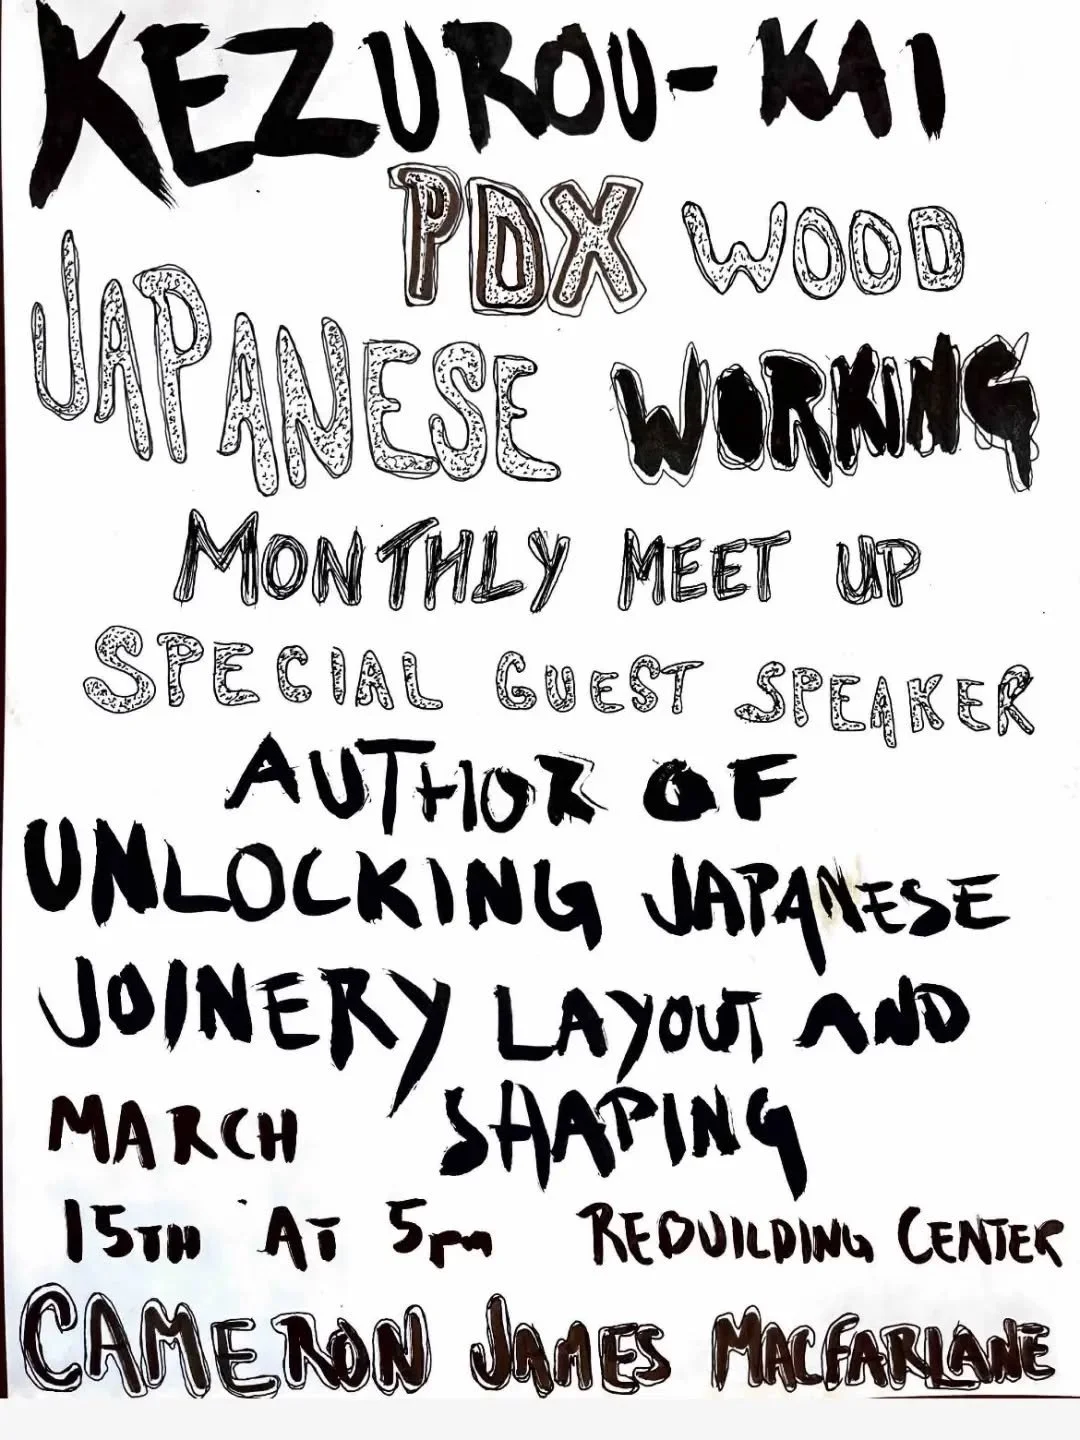 KEZUROU-KAI
PDX WOOD
JAPANESE WORKING
MONTHLY MEET UP
SPECIAL GUEST SPEAKER
AUTHOR OF
UNLOCKING JAPANESE
JOINERY LAYOUT AND
MARCH SHAPING
15TH AT 5pm REBUILDING CENTER
CAMERON JAMES MACFARLANE